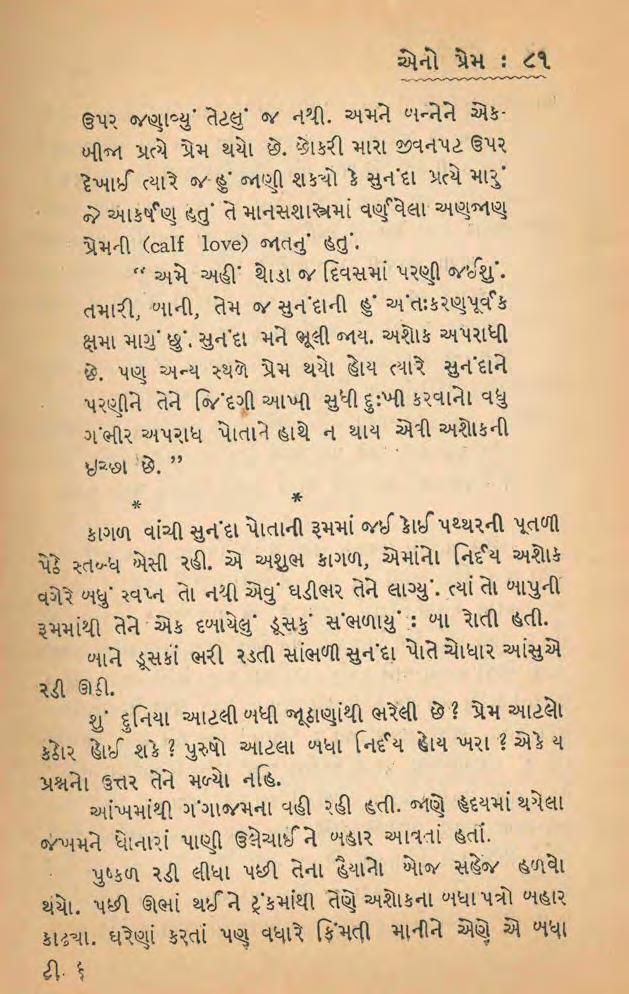 એનો પ્રેમ : ૮૧
ઉપર જણાવ્યું તેટલું જ નથી. અમને બન્નેને એક-
બીજા પ્રત્યે પ્રેમ થયો છે. છોકરી મારા જીવનપટ ઉપર
દેખાઈ ત્યારે જ હું જાણી શક્યો કે સુનંદા પ્રત્યે મારું
જે આકર્ષણ હતું તે માનસશાસ્ત્રમાં વર્ણવેલા અણજાણ
પ્રેમની (calf love) જાતનું હતું.
“ અમે અહીં થોડા જ દિવસમાં પરણી જઈશું.
તમારી, બાની, તેમ જ સુનંદાની હું અંતઃકરણપૂર્વક
ક્ષમા માગું છું. સુનંદા મને ભૂલી જાય. અશોક અપરાધી
છે. પણ અન્ય સ્થળે પ્રેમ થયો હોય ત્યારે સુનંદાને
પરણીને તેને જિંદગી આખી સુધી દુઃખી કરવાનો વધુ
ગંભીર અપરાધ પોતાને હાથે ન થાય એવી અશોકની
ઇચ્છા છે. ”
* *
કાગળ વાંચી સુનંદા પોતાની રૂમમાં જઈ કોઈ પથ્થરની પૂતળી
પેઠે સ્તબ્ધ બેસી રહી. એ અશુભ કાગળ, એમાંનો નિર્દય અશોક
વગેરે બધું સ્વપ્ન તો નથી એવું ઘડીભર તેને લાગ્યું. ત્યાં તો બાપુની
રૂમમાંથી તેને એક દબાયેલું ડૂસકું સંભળાયું : બા રોતી હતી.
બાને ડૂસકાં ભરી રડતી સાંભળી સુનંદા પોતે ચોધાર આંસુએ
રડી ઊઠી.
શું દુનિયા આટલી બધી જૂઠાણાંથી ભરેલી છે ? પ્રેમ આટલો
કઠોર હોઈ શકે ? પુરુષો આટલા બધા નિર્દય હોય ખરા ? એકે ય
પ્રશ્નનો ઉત્તર તેને મળ્યો નહિ.
આંખમાંથી ગંગાજમના વહી રહી હતી. જાણે હૃદયમાં થયેલા
જખમને ધોનારાં પાણી ઉલેચાઈ ને બહાર આવતાં હતાં.
પુષ્કળ રડી લીધા પછી તેના હૈયાનો બોજ સહેજ હળવો
થયો. પછી ઊભાં થઈ ને ટ્રંકમાંથી તેણે અશોકના બધા પત્રો બહાર
કાઢ્યા. ઘરેણાં કરતાં પણ વધારે કિંમતી માનીને એણે એ બધા
ટી. ૬